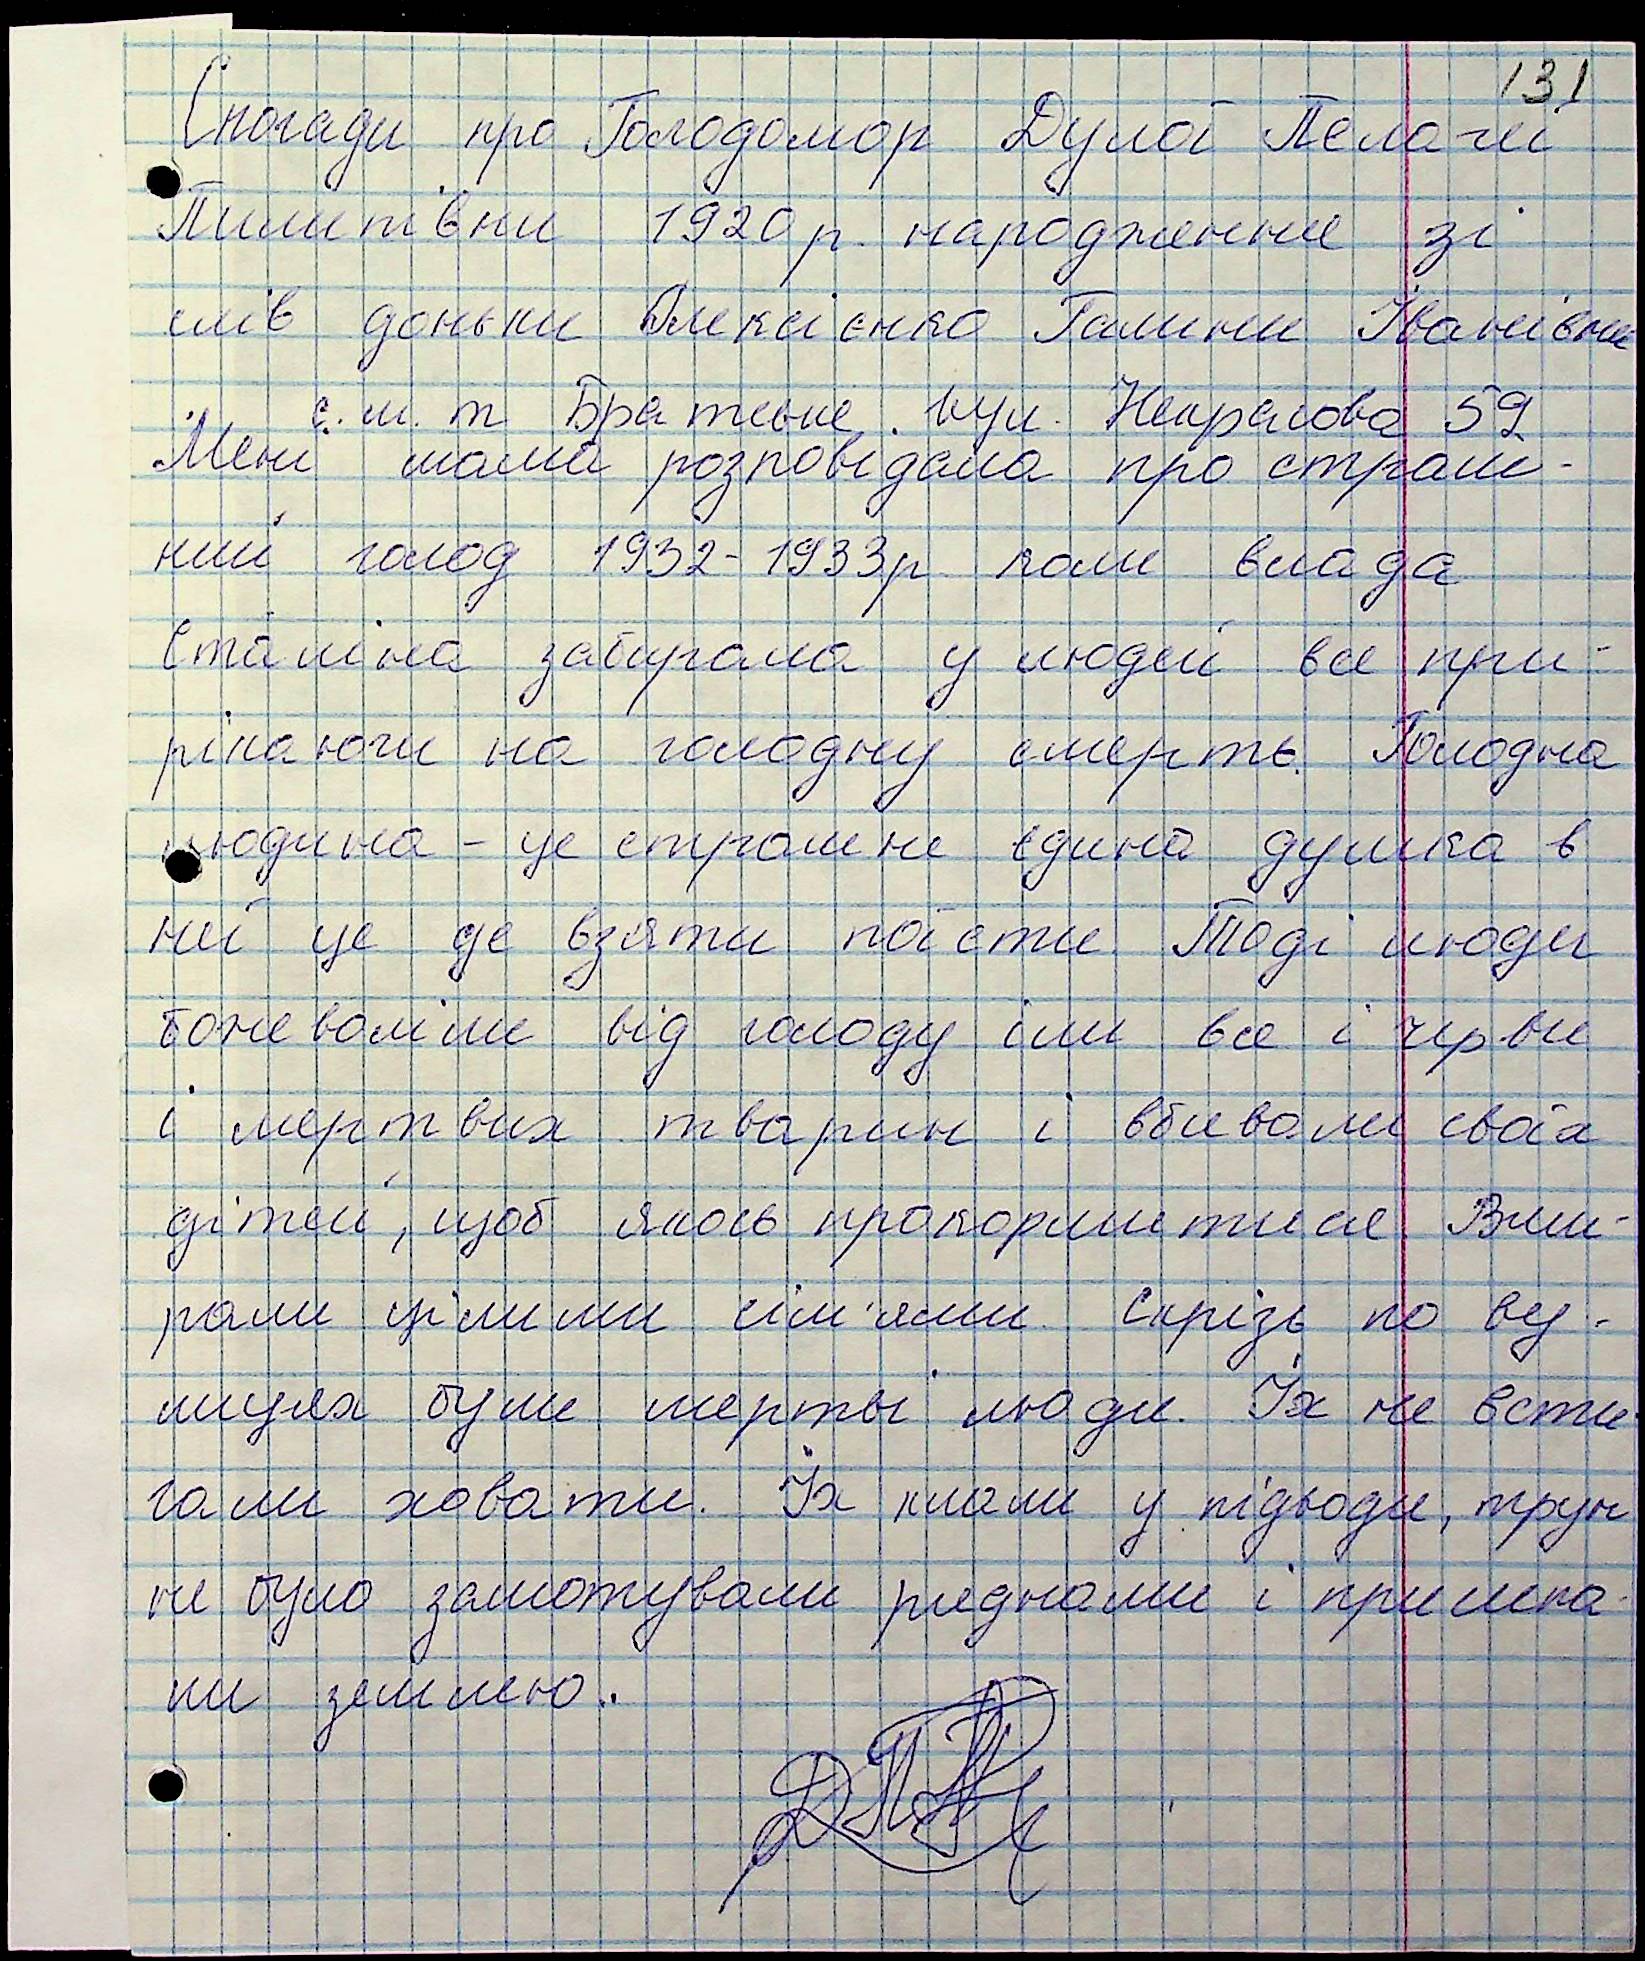 131
Спогади про Голодомор Дулої Пелагеї
Пилипівни 1920 р. народження зі
слів доньки Алексієнко Галини Іванівни
с.м.т Братське. вул. Некрасова 59
Мені мама розповідала про страш-
ний голод 1932-1933р коли влада
Сталіна забирала у людей все при-
рікаючи на голодну смерть. Голодна
людина – це страшне єдина думка в
неї це де взяти поїсти. Тоді люди
божеволіли від голоду їли все і черви
і мертвих тварин і вбивали своїх
дітей, щоб якось прокормитися. Вми-
рали цілими сім'ями. Скрізь по ву-
лицях були мертві люди. Їх не всти-
гали ховати. Їх клали у підводи, трун
не було замотували ряднами і присипа-
ли землею..